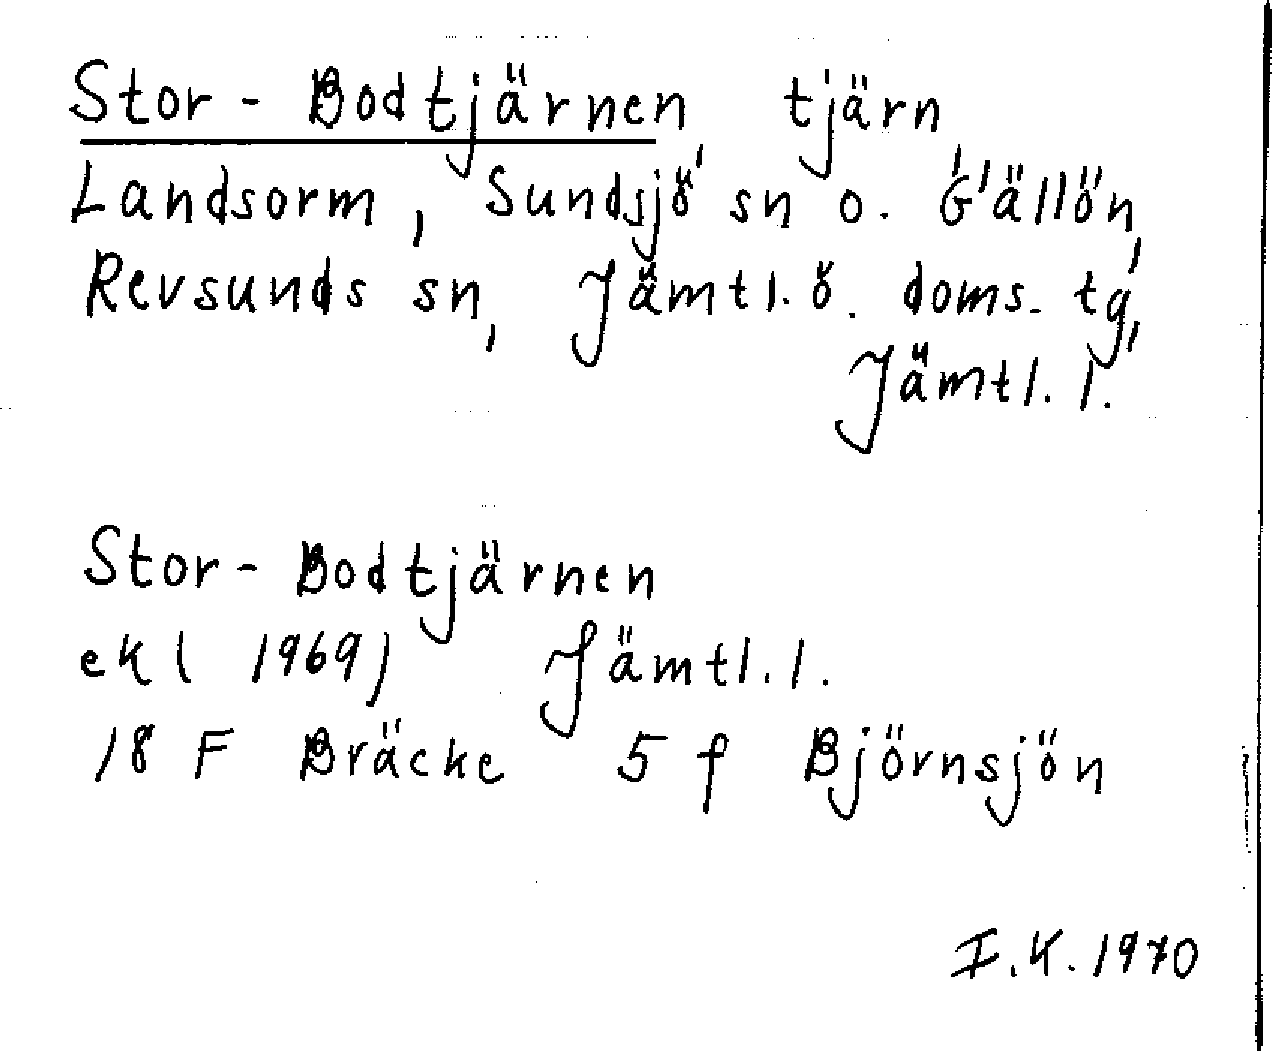 Stor-Bodtjärnen, tjärn,
Landsorm, Sundsjö sn o. Gällön,
Revsunds sn, Jämtl. ö. doms. tg,
Jämtl. l.
Stor-Bodtjärnen
ek( 1969) Jämtl. l.
18 F Bräcke 5 f Björnsjön
I.K. 1970